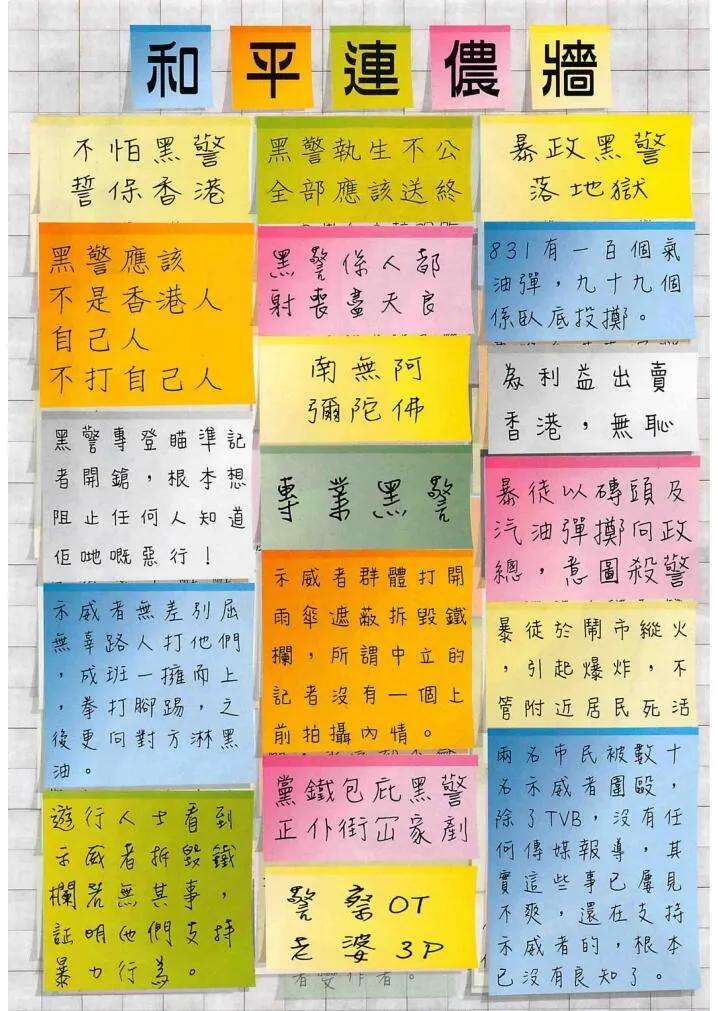 和平連儂牆
不怕黑警
誓保香港
黑警應該
不是香港人
自己人
不打自己人
黑警專登瞄準記
者開鎗，根本想
阻止任何人知道
佢哋嘅惡行！
示威者無差別屈
無辜路人打他們
，成班一擁而上
，拳打腳踢，之
後更向對方淋黑
油。
遊行人士看到
示威者拆毀鐵
欄若無其事，
証明他們支持
暴力行為。
黑警執生不公
全部應該送終
黑警係人都
射喪盡天良
南無阿
彌陀佛
專業黑警
示威者群體打開
雨傘遮蔽拆毀鐵
欄，所謂中立的
記者沒有一個上
前拍攝內情。
黨鐵包庇黑警
正仆街冚家剷
警察OT
老婆3P
暴政黑警
落地獄
831有一百個氣
油彈，九十九個
係臥底投擲。
為利益出賣
香港，無恥
暴徒以磚頭及
汽油彈擲向政
總，意圖殺警
暴徒於鬧市縱火
，引起爆炸，不
管附近居民死活
兩名市民被數十
名示威者圍毆，
除了TVB，沒有任
何傳媒報導，其
實這些事已屢見
不爽，還在支持
示威者的，根本
已沒有良知了。